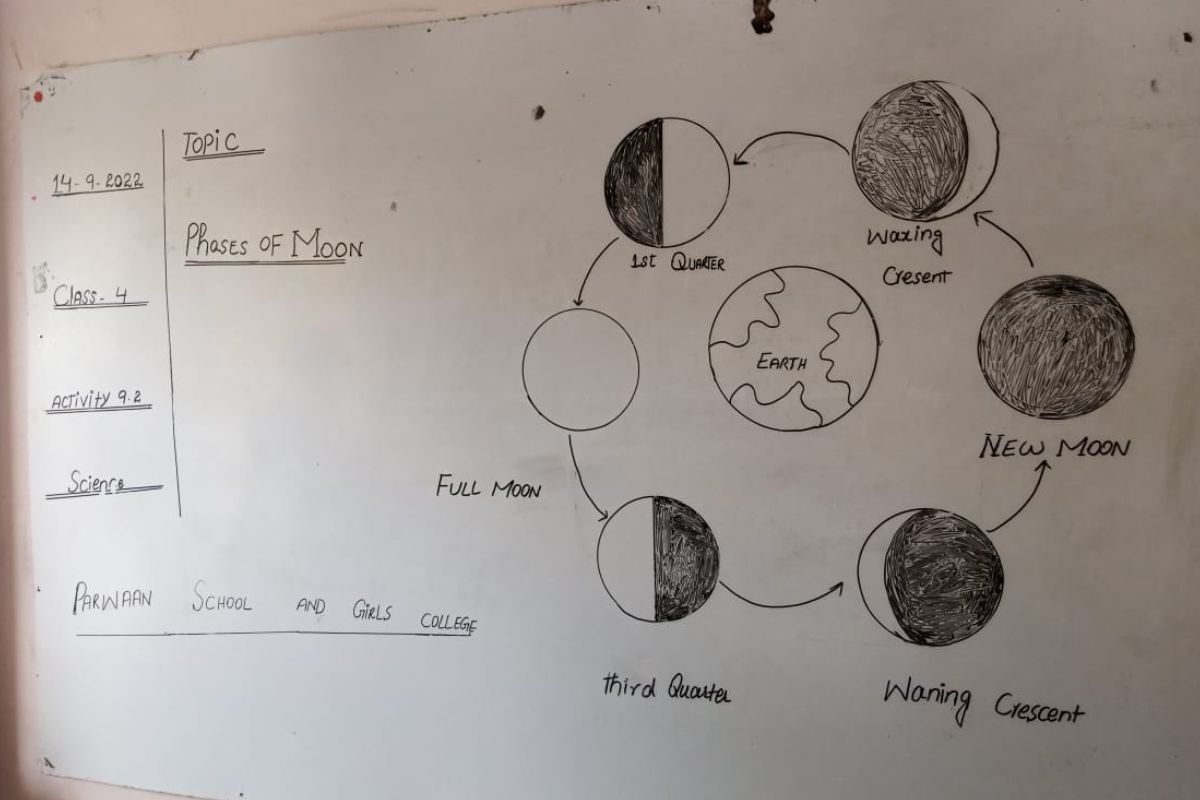 14-9-2022
Class-4
Activity 9.2
Science
TOPIC
Phases OF MOON
PARWAAN SCHOOL AND GIRLS COLLEGE
1st QUARTER
Waxing
Cresent
EARTH
NEW MOON
FULL MOON
third Quarter
Waning Crescent